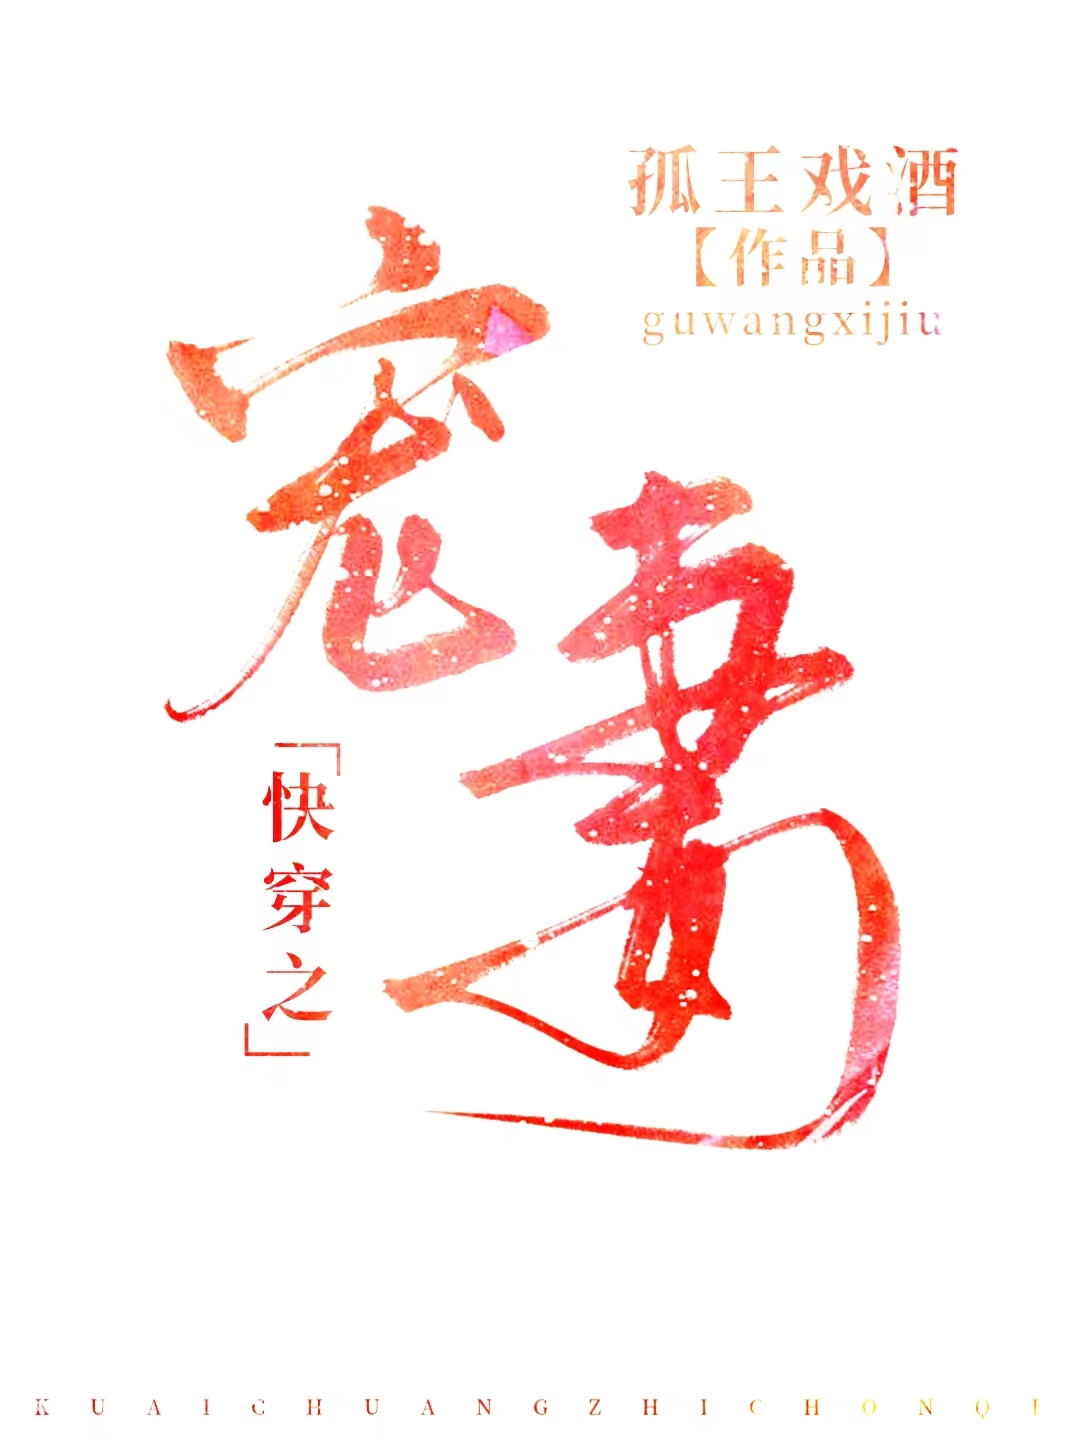 孤王戏酒
【作品】
guwangxijiu
宠妻
「快穿之」
KUAICHUANGZHICHONQI